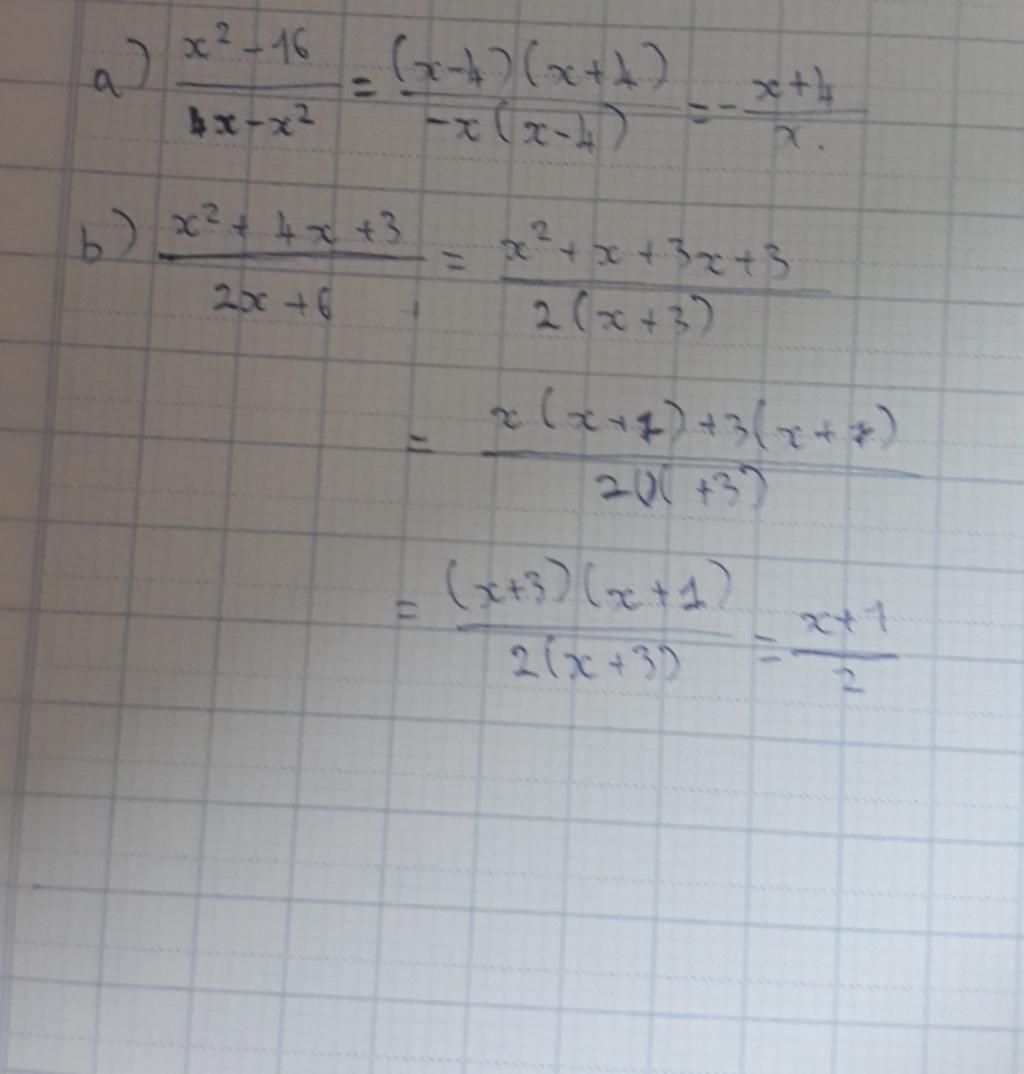 a) \frac{x^2-16}{4x-x^2} = \frac{(x-4)(x+4)}{-x(x-4)} = -\frac{x+4}{x}.
b) \frac{x^2+4x+3}{2x+6} = \frac{x^2+x+3x+3}{2(x+3)}
= \frac{x(x+1)+3(x+1)}{2(x+3)}
= \frac{(x+3)(x+1)}{2(x+3)} = \frac{x+1}{2}